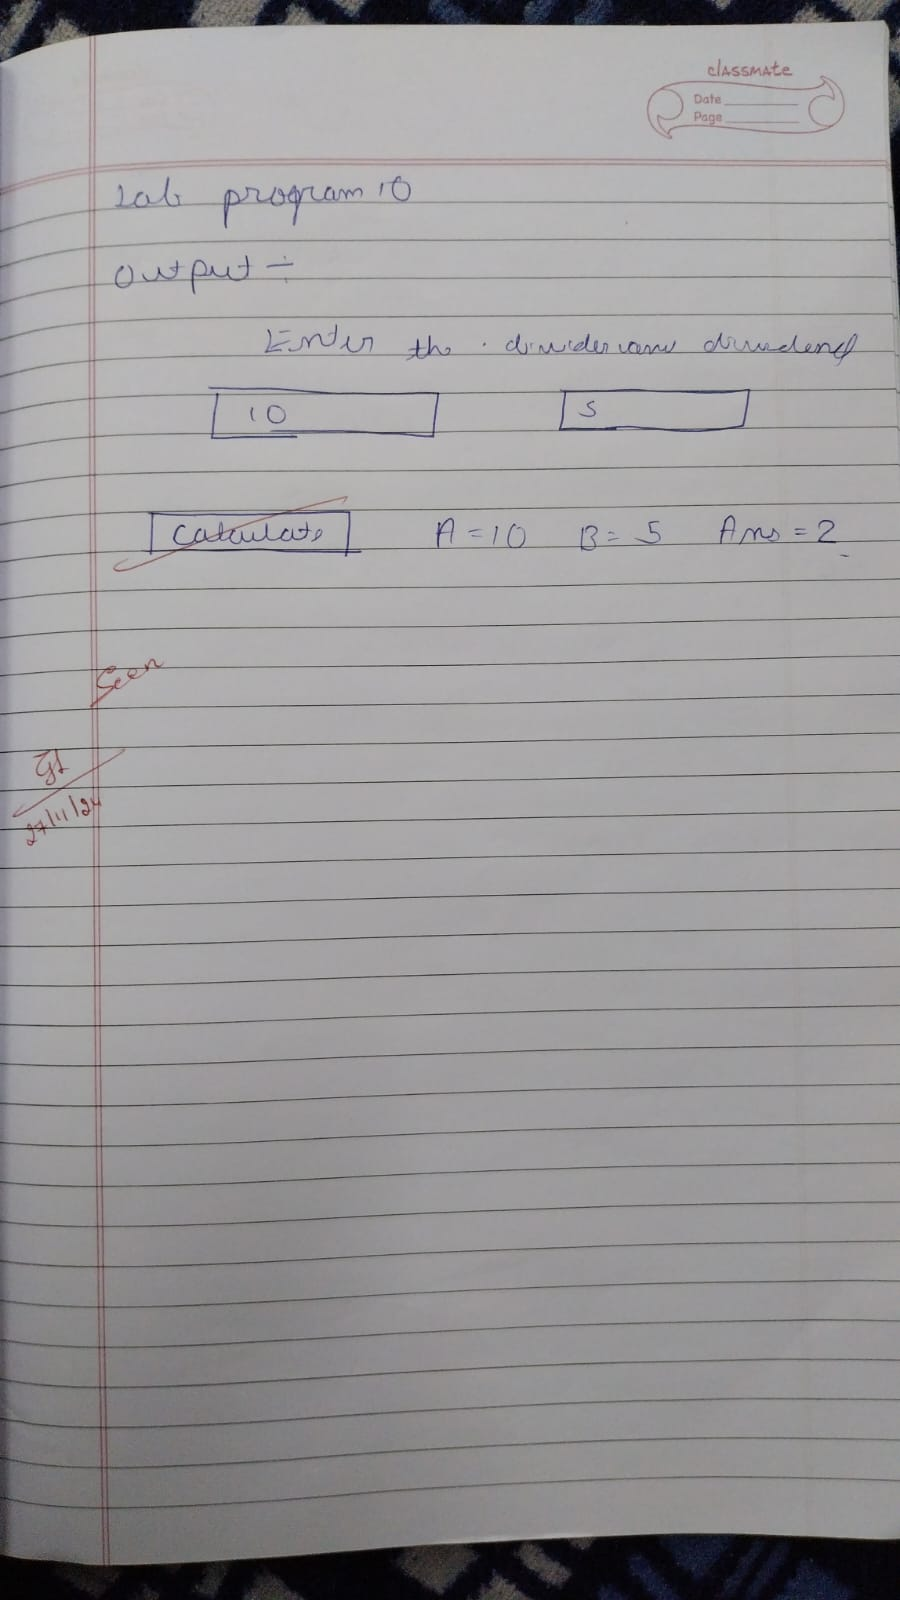 classmate
Date
Page
Lab program 10
Output :-
Enter the divider and dividend
10 5
Calculate A = 10 B = 5 Ans = 2
Seen
27/11/24